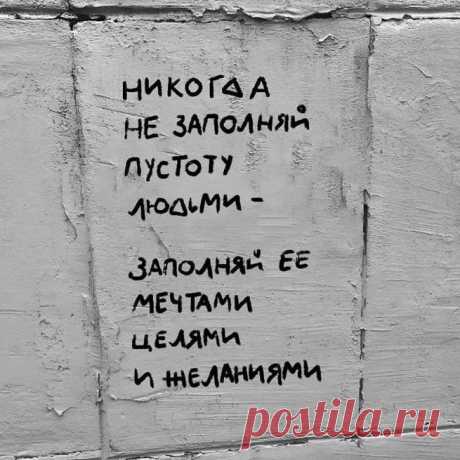 НИКОГДА
НЕ ЗАПОЛНЯЙ
ПУСТОТУ
ЛЮДЬМИ -
ЗАПОЛНЯЙ ЕЕ
МЕЧТАМИ
ЦЕЛЯМИ
И ЖЕЛАНИЯМИ
postila.ru